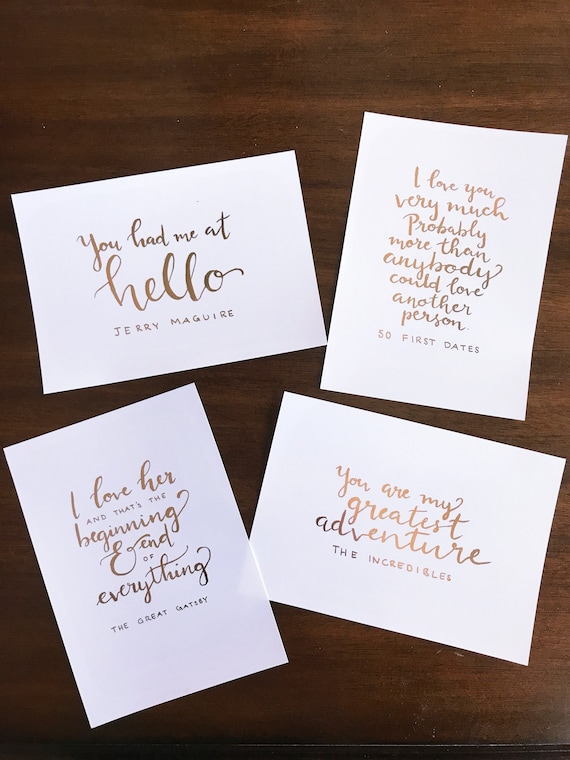 You had me at
hello
JERRY MAGUIRE
I love you
very much
Probably
more than
anybody
could love
another
person.
50 FIRST DATES
I love her
AND THAT'S THE
beginning
& end
OF
everything
THE GREAT GATSBY
You are my
greatest
adventure
THE INCREDIBLES